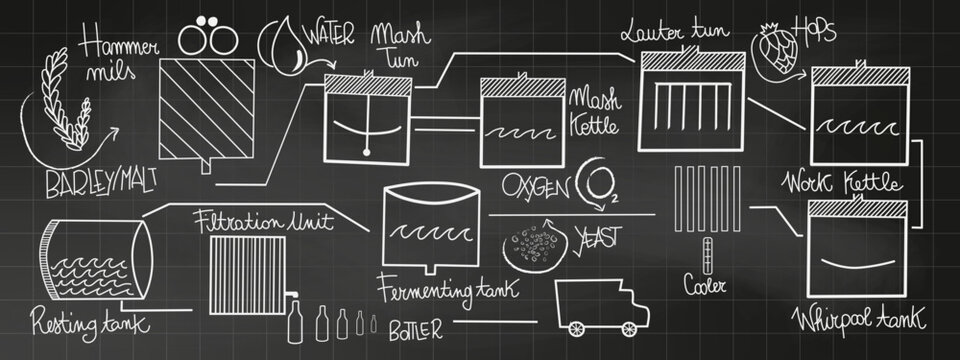 Hammer
mils
WATER
Mash
Tun
Lauter tun
HOPS
Mash
Kettle
BARLEY/MALT
OXYGEN
O2
Work Kettle
Filtration Unit
YEAST
Cooler
Resting tank
Fermenting tank
BOTLER
Whirpool tank